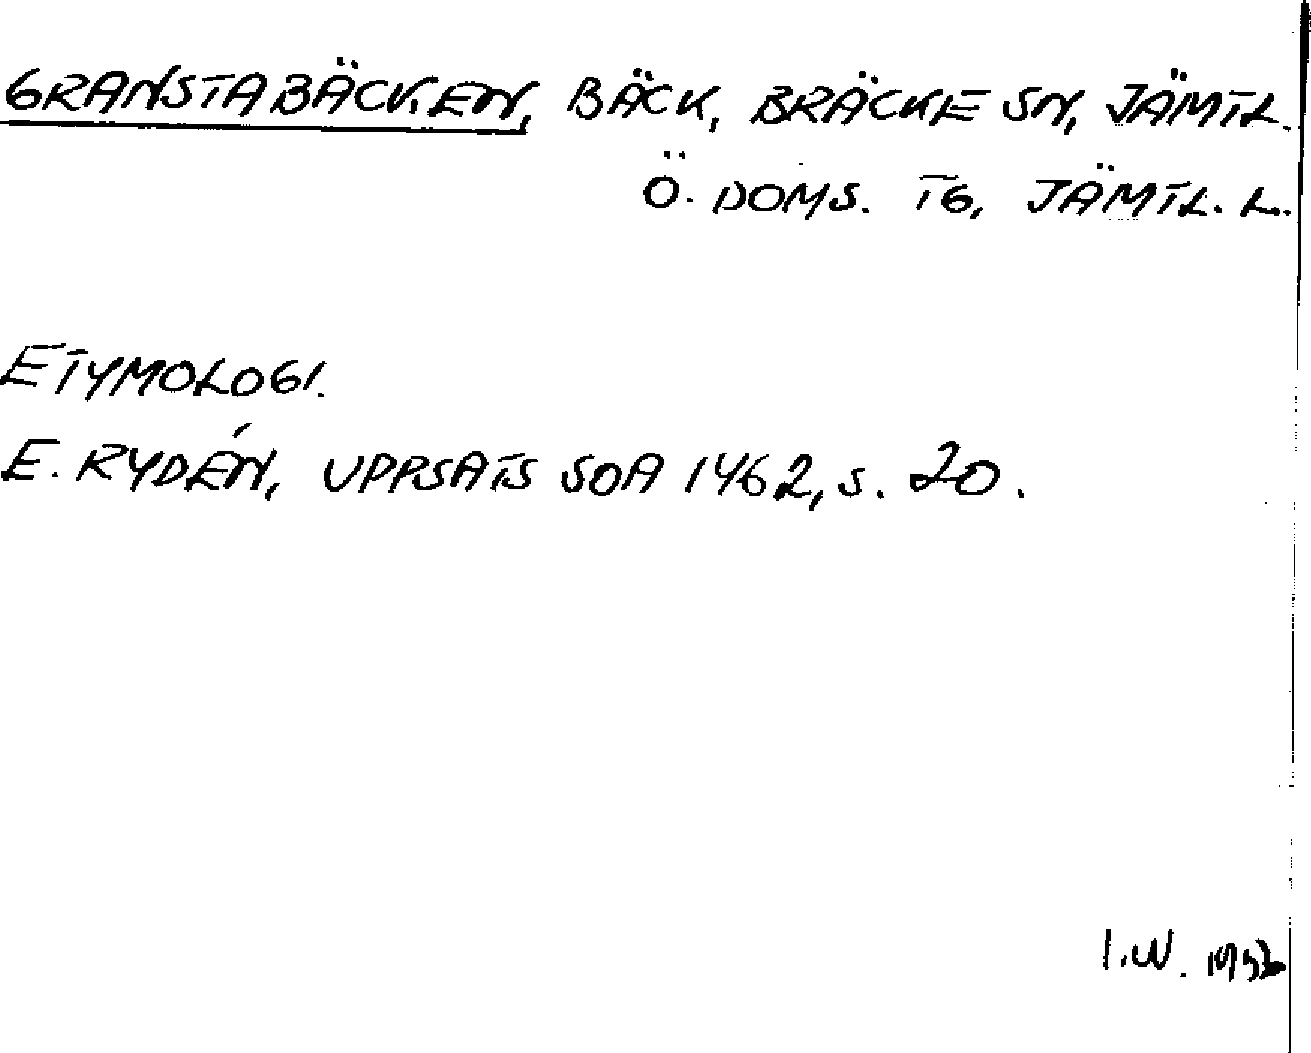 GRANSTABÄCKEN, BÄCK, BRÄCKE SN, JÄMTL.
Ö. DOMS. TG, JÄMTL. L.
ETYMOLOGI.
E. RYDÉN, UPPSATS SOA 1462, S. 20.
I.W.